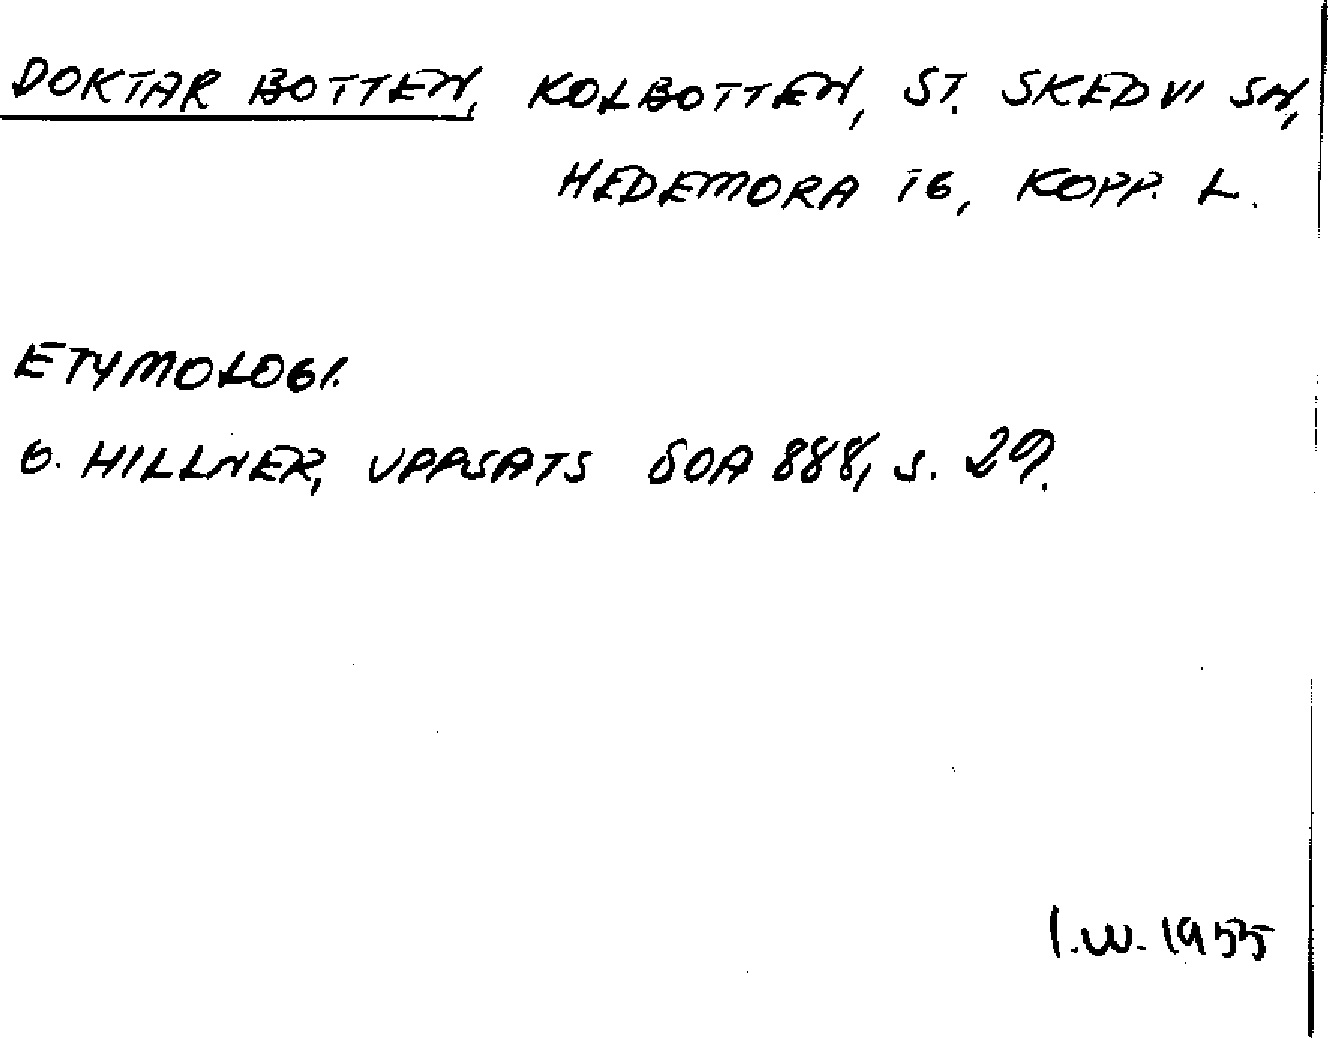 DOKTAR BOTTEN, KOLBOTTEN, ST. SKEDVI SN,
HEDEMORA TG, KOPP. L.
ETYMOLOGI.
G. HILLNER, UPPSATS SOA 888, S. 29.
I.W. 1955